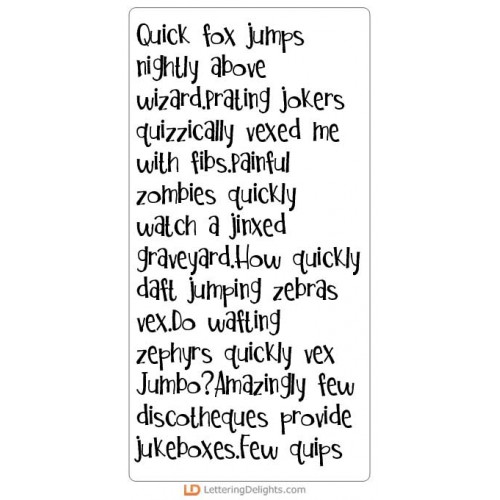 Quick fox jumps
nightly above
wizard.Prating jokers
quizzically vexed me
with fibs.Painful
zombies quickly
watch a jinxed
graveyard.How quickly
daft jumping zebras
vex.Do wafting
zephyrs quickly vex
Jumbo?Amazingly few
discotheques provide
jukeboxes.Few quips
LD LetteringDelights.com